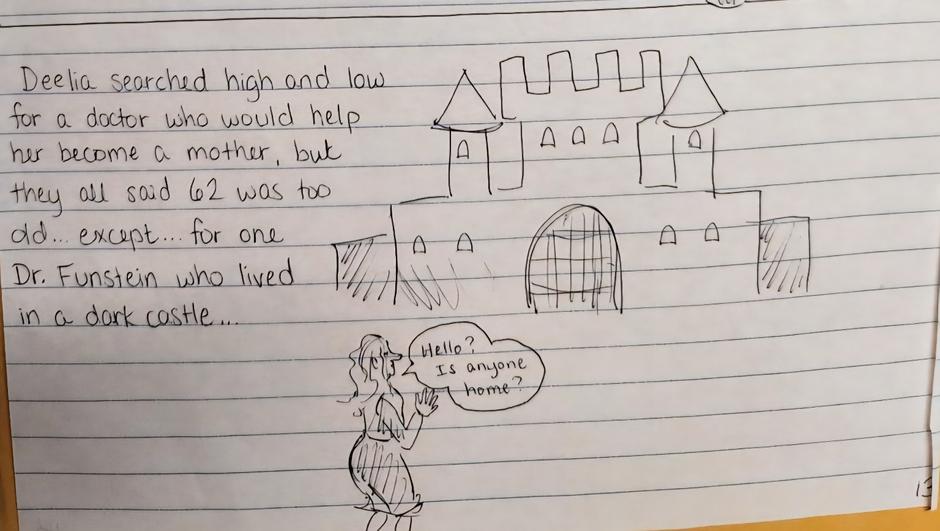 Deelia searched high and low
for a doctor who would help
her become a mother, but
they all said 62 was too
old... except... for one
Dr. Funstein who lived
in a dark castle...
Hello?
Is anyone
home?
13